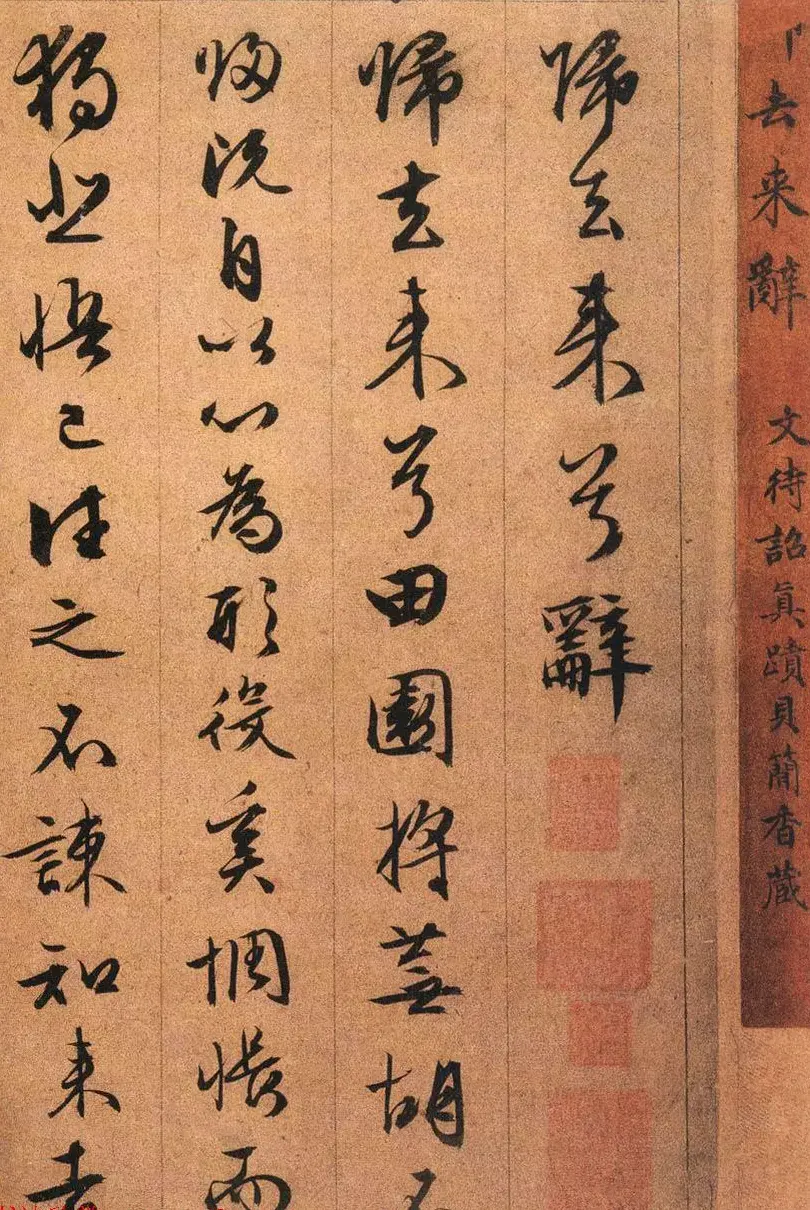 去来辭 文待詔眞蹟貝簡香蔵
歸去来兮辭
歸去来兮田園將蕪胡不
歸既自以心為形役奚惆悵而
獨悲悟已往之不諫知来者